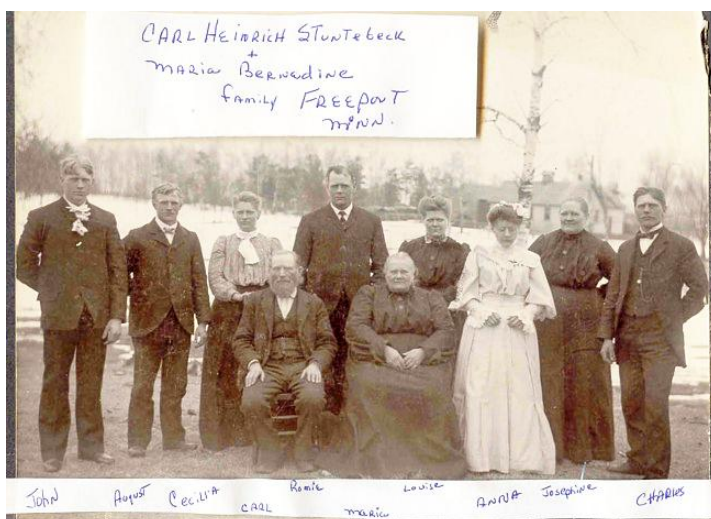 CARL HEINRICH STUNTEBECK
+
MARIA BERNADINE
FAMILY FREEPORT
MINN.
JOHN August CECILIA CARL Romie Maria Louise ANNA Josephine CHARLES